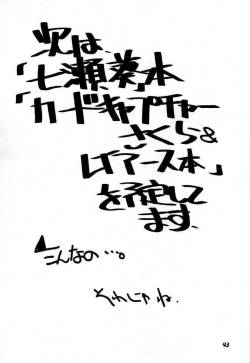 次は、
「七瀬葵」本
「カードキャプチャー
さくら&
レイアース本」
を予定して
ます。
こんなの…。
それじゃね。
43